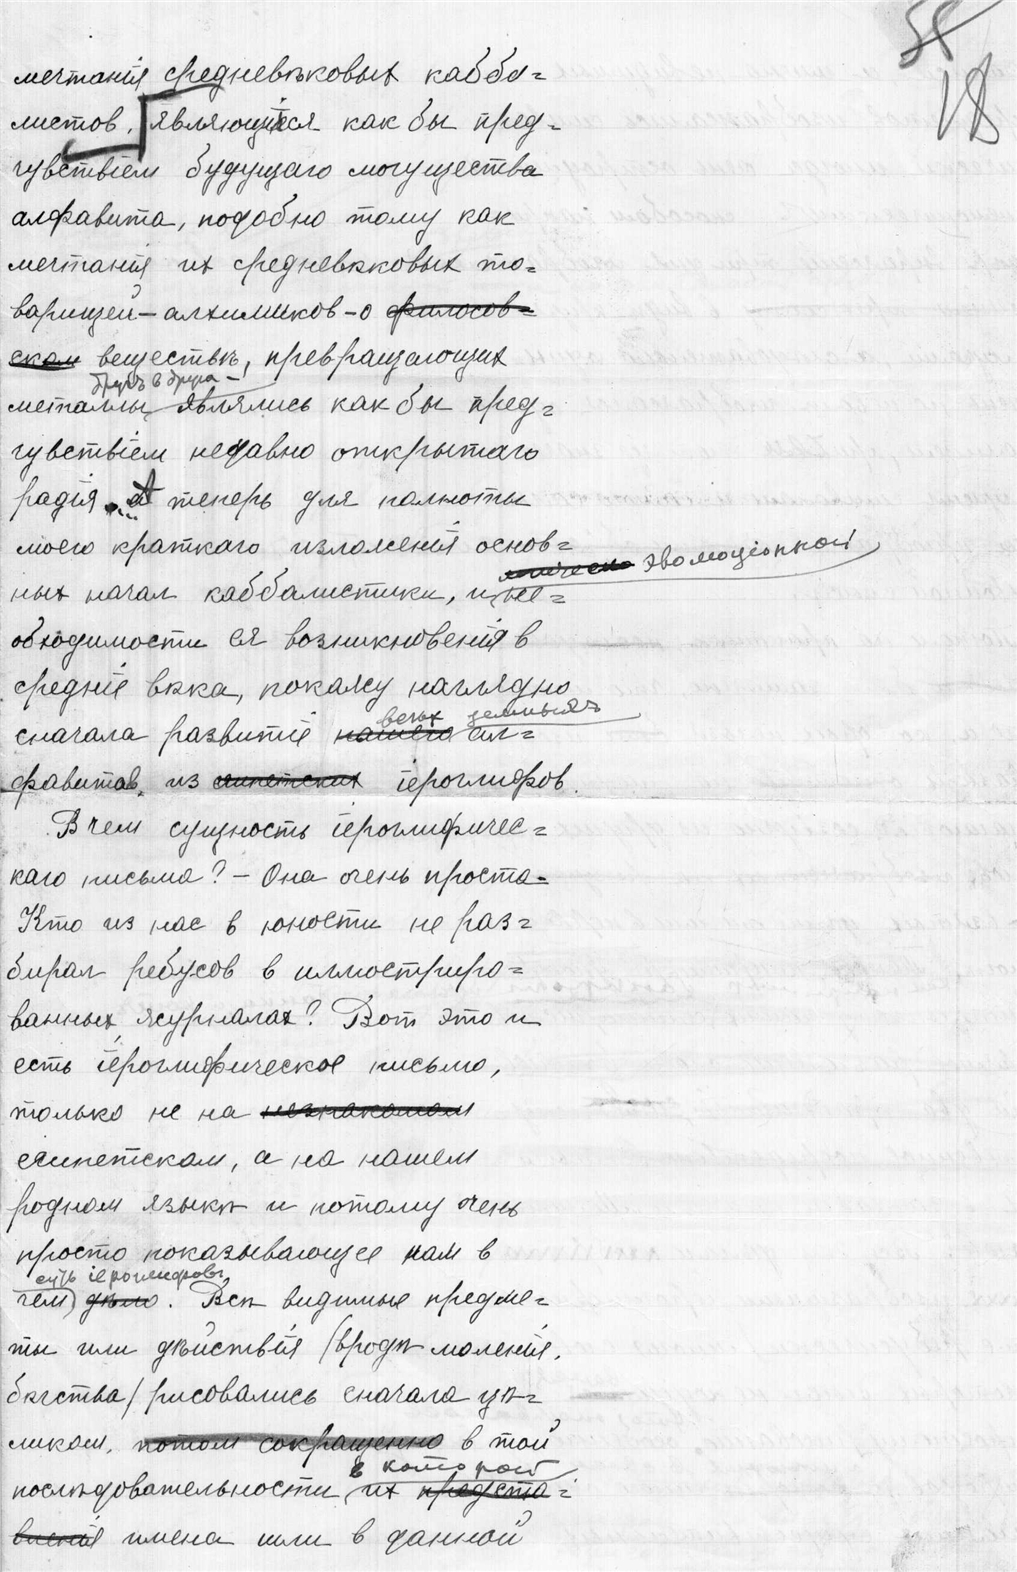 58
18
мечтанія средневѣковых кабба=
листов, являющіеся как бы пред=
чувствіем будущаго могущества
алфавита, подобно тому как
мечтанія их средневѣковых то=
варищей – алхимиков – о философ=
ском веществѣ, превращающих
друг в друга –
металлы, являлись как бы пред=
чувствіем недавно открытаго
радія. А теперь для полноты
моего краткаго изложенія основ=
эволюціонной
ных начал каббалистики, и не=
обходимости ея возникновенія в
средніе вѣка, покажу наглядно
всѣх земных
сначала развитіе нашего ал=
фавитов, из египетских іероглифов.
В чем сущность іероглифичес=
каго письма? – Она очень проста.
Кто из нас в юности не раз=
бирал ребусов в иллюстриро=
ванных журналах? Вот это и
есть іероглифическое письмо,
только не на незнакомом
египетском, а на нашем
родном языкѣ и потому очень
просто показывающее нам в
суть іероглифов
чем дѣло. Всѣ видимые предме=
ты или дѣйствія (вродѣ моленія,
бѣгства) рисовались сначала цѣ=
ликом, потом сокращенно в той
в которой
послѣдовательности, их предста=
вленія имена шли в данной